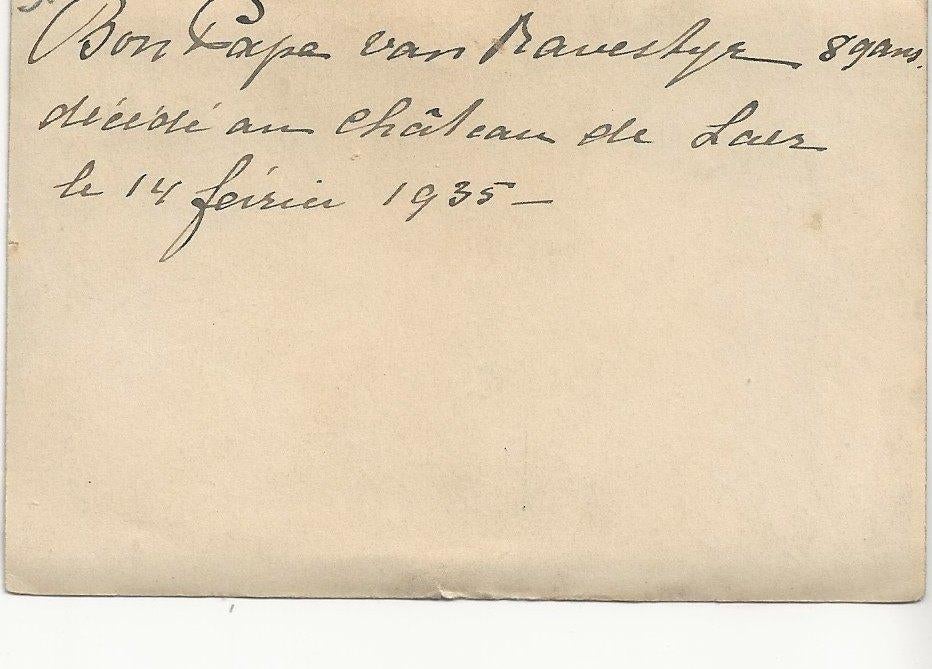 Bon Papa van Ravestyn 89 ans.
décédé au château de Laer
le 14 février 1935 —